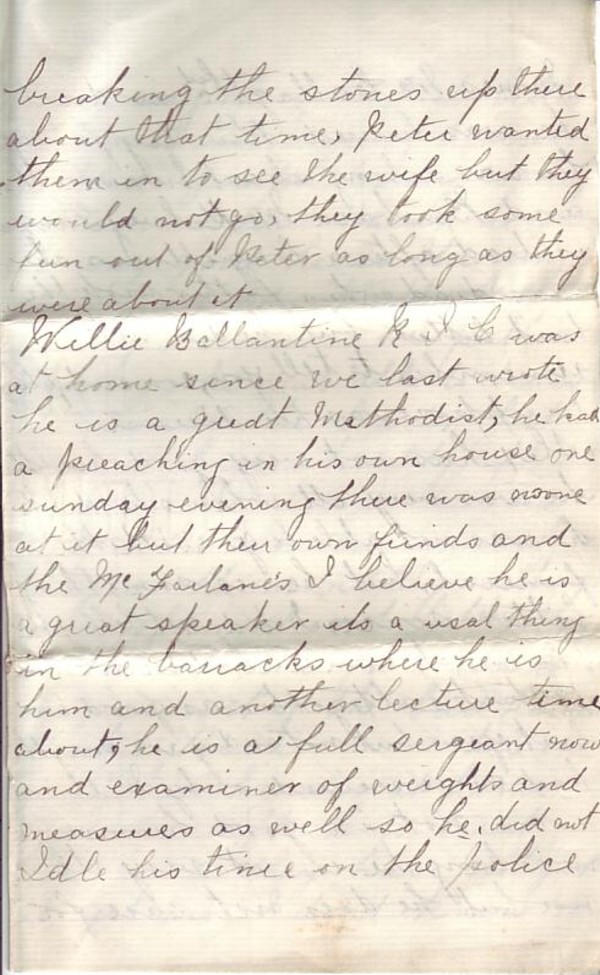 breaking the stones up there
about that time, Peter wanted
them in to see the wife but they
would not go, they took some
fun out of Peter as long as they
were about it
Willie Ballantine R I C was
at home since we last wrote
he is a gredt Methodist, he had
a preaching in his own house one
sunday evening there was noone
at it but their own frinds and
the Mc Farlane's I believe he is
a great speaker its a usal thing
in the barracks where he is
him and another lecture time
about, he is a full sergeant now
and examiner of weights and
measures as well so he did not
Idle his time on the police